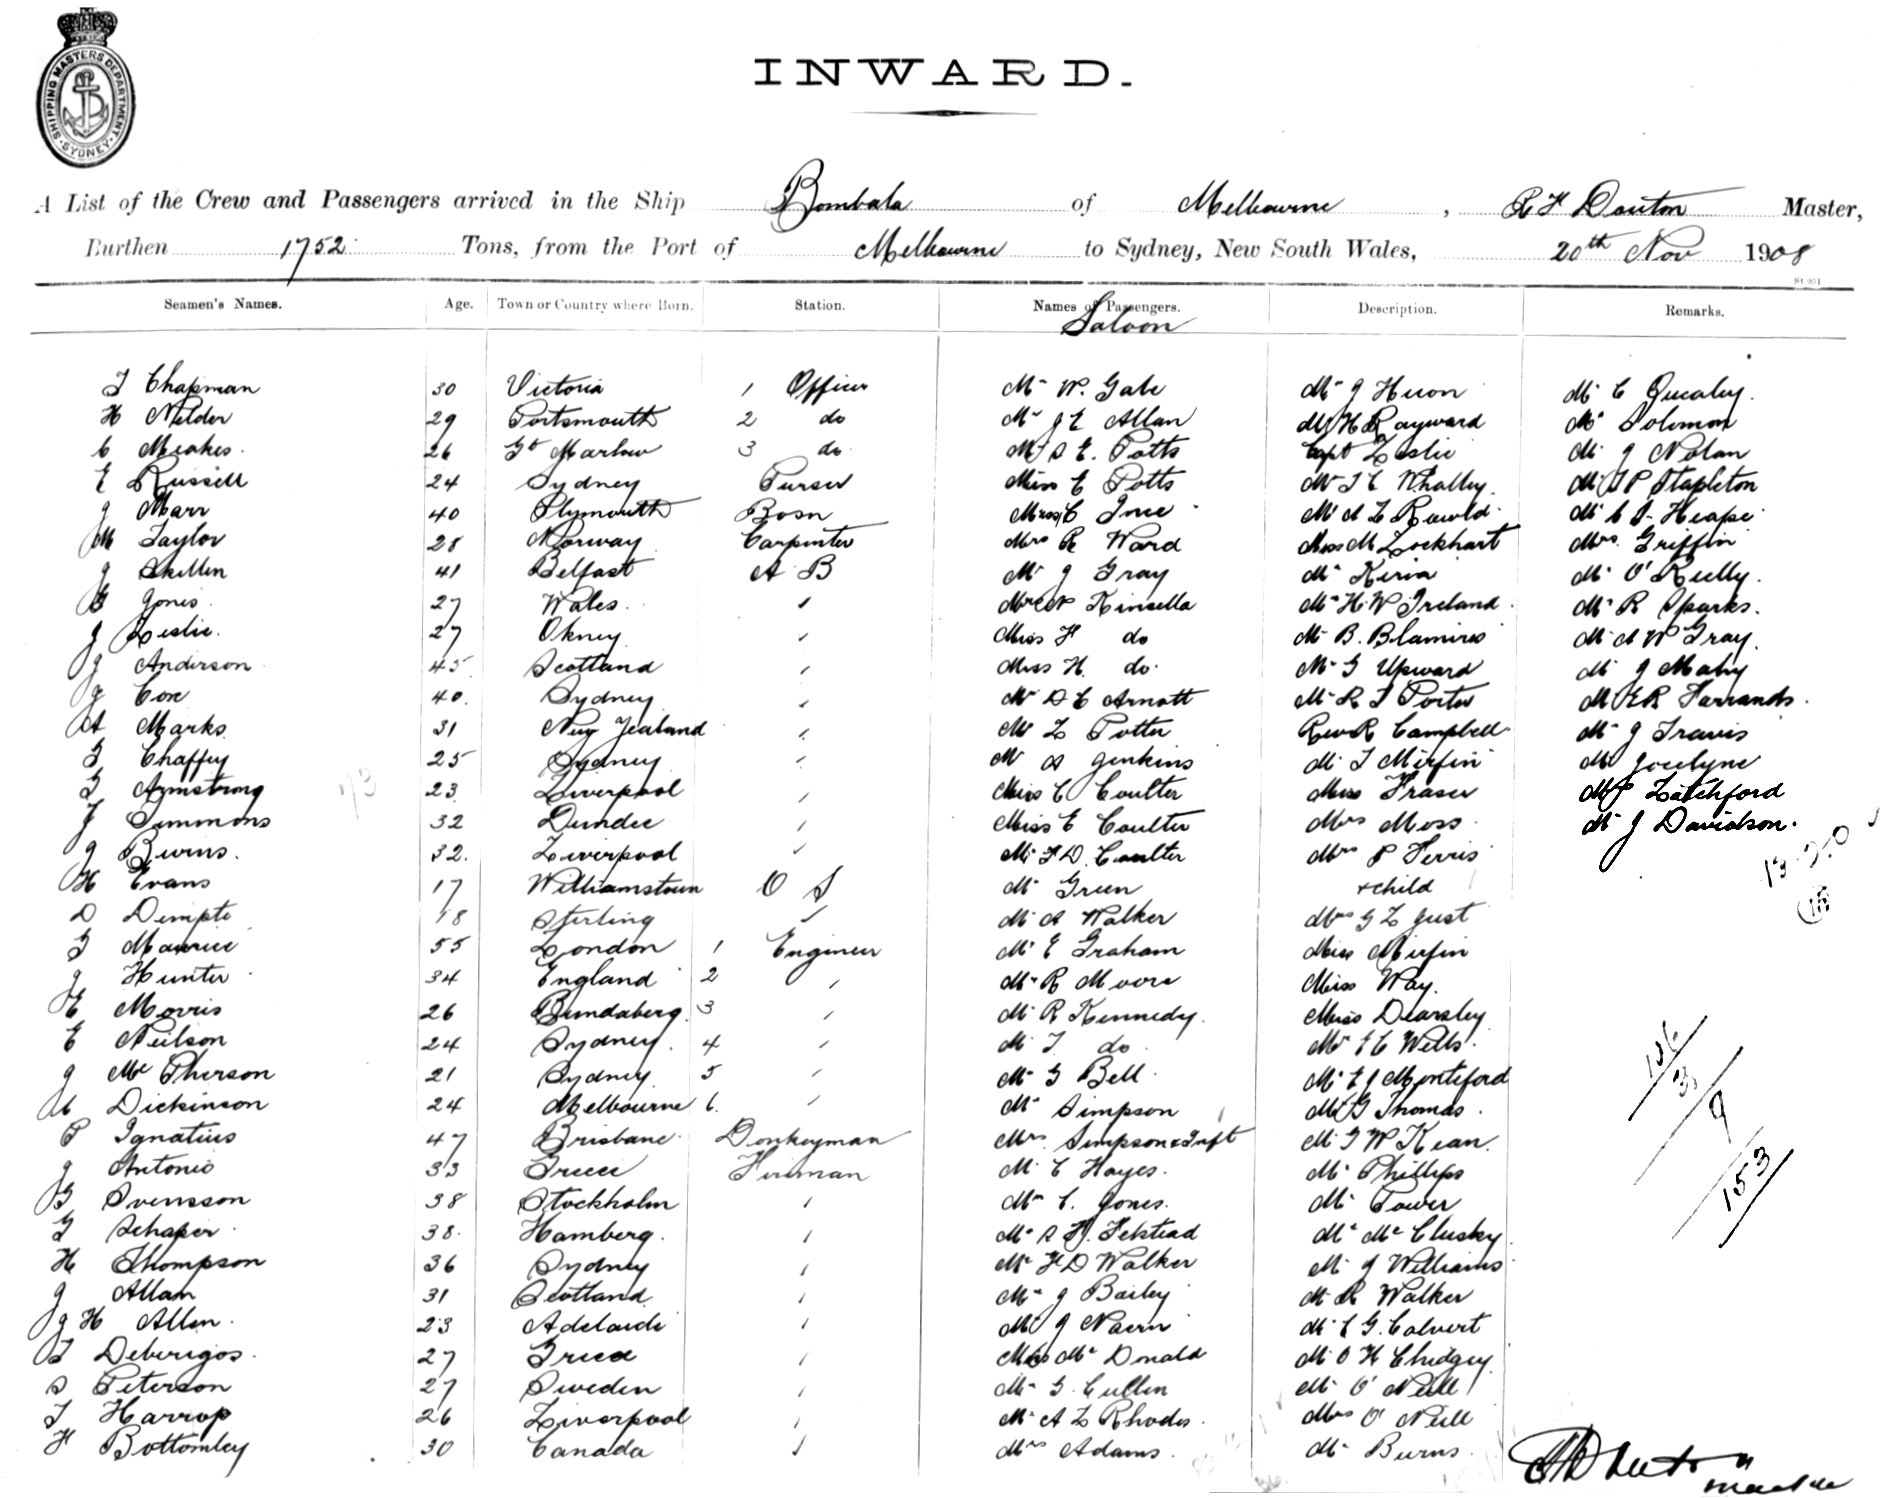 SHIPPING MASTERS DEPARTMENT
SYDNEY
INWARD.
A List of the Crew and Passengers arrived in the Ship Bombala of Melbourne, R F Douton Master,
Burthen 1752 Tons, from the Port of Melbourne to Sydney, New South Wales, 20th Nov 1908
Seamen's Names. Age. Town or Country where Born. Station. Names of Passengers. Description. Remarks.
Saloon
T Chapman 30 Victoria 1 Officer Mr W. Gale Mr J Huon Mr C Queale
H Nilder 29 Portsmouth 2 do Mr J E Allan Mr H Rayward Mr Solomon
C Meakes 26 Gt Marlow 3 do Mr S E. Potts Capt Leslie Mr J Nolan
E Russell 24 Sydney Purser Miss E Potts Mr T C Whalley Mr T P Stapleton
J Marr 40 Plymouth Bosn Miss C Ince Mr A L Rewold Mr C S. Heape
M Taylor 28 Norway Carpenter Mrs R Ward Miss M Lockhart Mrs Griffin
J Skillen 41 Belfast A B Mr J Gray Mr Kirin Mr O'Reilly
G Jones 27 Wales Mrs N Kinsella Mr H W Ireland Mr R Sparks
J Leslie 27 Okney Miss F do Mr B. Blamires Mr A W Gray
J Anderson 45 Scotland Miss H. do Mr G Upward Mr J Mahy
J Cox 40 Sydney Mr D C Arnott Mr R T Porter Mr E R Farrands
A Marks 31 New Zealand Mr L Potter Rev R Campbell Mr J Travis
G Chaffey 25 Sydney Mr A Jenkins Mr T Mirfin Mr Jocelyne
G Armstrong 23 Liverpool Miss C Coulter Miss Fraser Mr Latchford
J Simmons 32 Dundee Miss E Coulter Mrs Moss Mr J Davidson
J Burns 32 Liverpool Mr F D. Coulter Mrs P Ferris
H Evans 17 Williamstown O S Mr Green + child
D Dempte 18 Sterling Mr A Walker Mrs G L Just
G Maurice 55 London 1 Engineer Mr E Graham Miss Mirfin
J Hunter 34 England 2 Mr R Moore Miss Way
E Morris 26 Bundaberg 3 Mr R Kennedy Miss Dearsley
E Neilson 24 Sydney 4 Mr T do Mr E C Wells
J McPherson 21 Sydney 5 Mr G Bell Mr E J Monteford
C Dickinson 24 Melbourne 6 Mr Simpson Mr G Thomas
P Ignatius 47 Brisbane Donkeyman Mrs Simpson & Inft Mr G W Kean
J Antonio 33 Greece Fireman Mr C Hayes Mr Phillips
G Svensson 38 Stockholm Mr C. Jones Mr Power
G Schaper 38 Hamberg Mr S H. Felstead Mr McClusky
H Thompson 36 Sydney Mr F D Walker Mr J Williams
J Allan 31 Scotland Mr J Bailey Mr R Walker
J H Allen 23 Adelaide Mr J Nairn Mr C G. Calvert
T Deberigos 27 Greece Miss McDonald Mr O H Chidgey
S Peterson 27 Sweden Mr G. Cullen Mr O'Neill
T Harrop 26 Liverpool Mr A L Rhodes Mrs O'Neill
F Bottomley 30 Canada Mrs Adams Mr Burns
13-2-0
136
3
9
153
Master